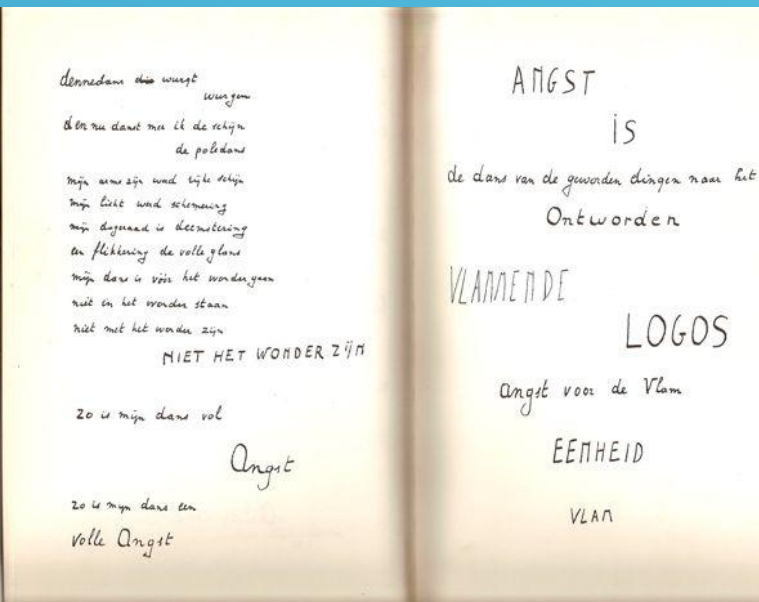 dennedans die wurgt
wurgen
en nu danst mee ik de schijn
de poledans
mijn arms zijn werd rijke schijn
mijn licht werd schemering
mijn dageraad is deemstering
en flikkering de volle glans
mijn dans is vóór het wonder gaan
niet in het wonder staan
niet met het wonder zijn
NIET HET WONDER ZIJN
zo is mijn dans vol
Angst
zo is mijn dans een
volle Angst
ANGST
iS
de dans van de geworden dingen naar het
Ontworden
VLAMMENDE
LOGOS
angst voor de Vlam
EENHEID
VLAM